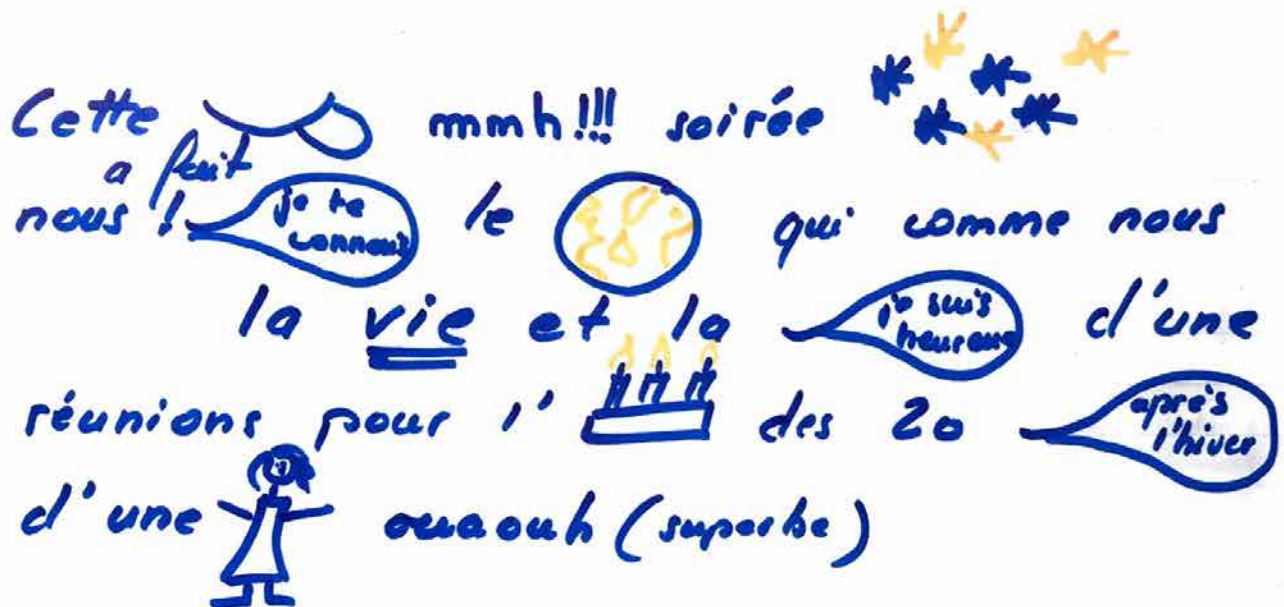 Cette mmh!!! soirée
a fait
nous ! je te connais le qui comme nous
la vie et la je suis heureuse d'une
réunions pour l' des 20 après l'hiver
d'une ouaouh (superbe)